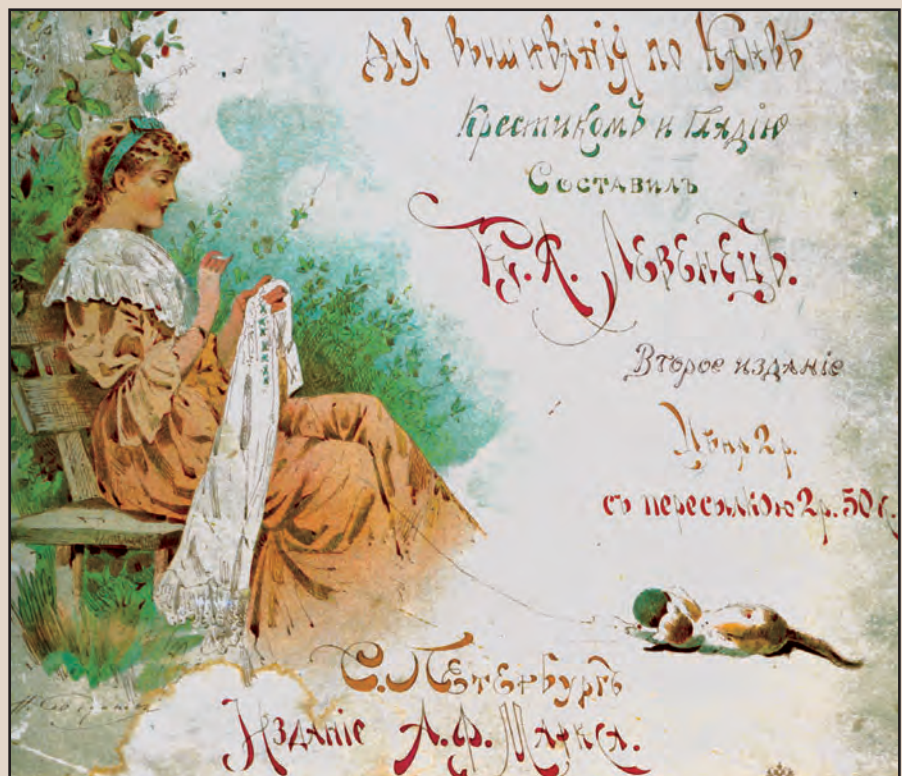 для вышиванія по канвѣ
крестикомъ и гладью
Составилъ
Левенецъ.
Второе изданіе
Цѣна 2 р.
съ пересылкою 2 р. 50 к.
С. Петербургъ
Изданіе А. Ф. Маркса.